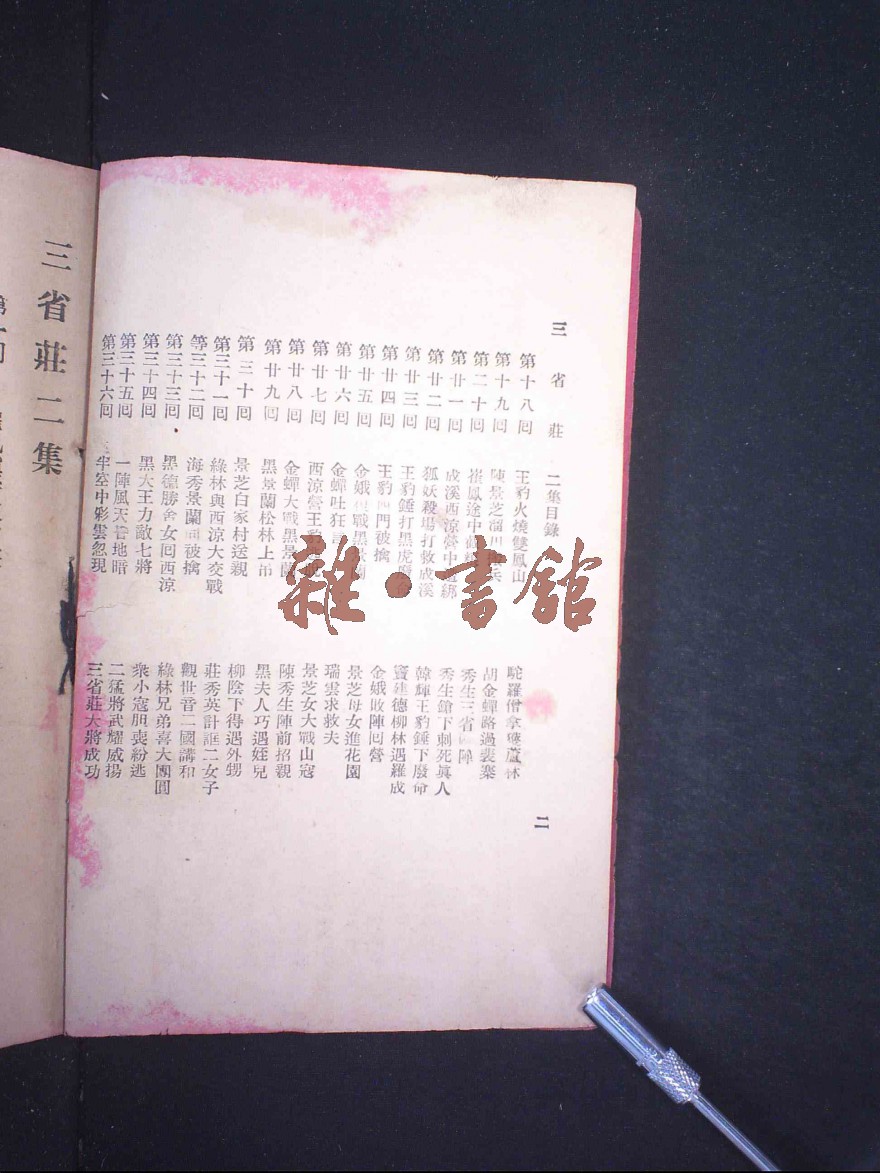 三省莊 二集目錄 二
第十八囘 王豹火燒雙鳳山 駝羅僧拿 蘆林
第十九囘 陳景芝溜川 兵 胡金蟬路過裴寨
第二十囘 崔鳳途中 秀生三省 陣
第廿一囘 成溪西涼營中 綁 秀生鎗下刺死眞人
第廿二囘 狐妖殺場打救成溪 韓輝王豹錘下廢命
第廿三囘 王豹錘打黑虎 竇建德柳林遇羅成
第廿四囘 王豹 門被擒 金娥敗陣囘營
第廿五囘 金娥 戰黑 景芝母女進花園
第廿六囘 金蟬吐狂 瑞雲求救夫
第廿七囘 西涼營王豹 景芝女大戰山寇
第廿八囘 金蟬大戰黑景蘭 陳秀生陣前招親
第廿九囘 黑景蘭松林上吊 黑夫人巧遇姪兒
第三十囘 景芝白家村送親 柳陰下得遇外甥
第三十一囘 綠林與西涼大交戰 莊秀英計誆二女子
等三十二囘 海秀景蘭同被擒 觀世音二國講和
第三十三囘 黑德勝舍女囘西涼 綠林兄弟喜大團圓
第三十四囘 黑大王力敵七將 衆小寇胆喪紛逃
第三十五囘 一陣風天昏地暗 二猛將武耀威揚
第三十六囘 半空中彩雲忽現 三省莊大將成功
三省莊二集
第一囘
雜·書館